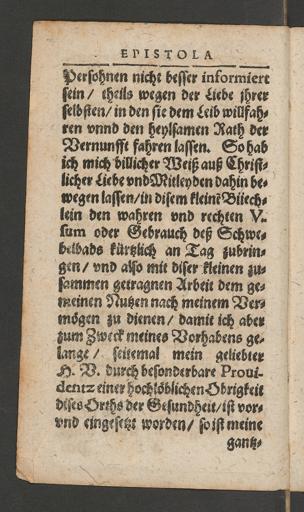 EPISTOLA
Persohnen nicht besser informiert
sein / theils wegen der Liebe jhrer
selbsten / in den sie dem Leib willfah-
ren vnnd den heylsamen Rath der
Vernunfft fahren lassen. So hab
ich mich billicher Weiß auß Christ-
licher Liebe vnd Mitleyden dahin be-
wegen lassen / in disem kleinē Büech-
lein den wahren vnd rechten V-
sum oder Gebrauch deß Schwe-
belbads kürtzlich an Tag zubrin-
gen / vnd also mit diser kleinen zu-
sammen getragnen Arbeit dem ge-
meinen Nutzen nach meinem Ver-
mögen zu dienen / damit ich aber
zum Zweck meines Vorhabens ge-
lange / seitemal mein geliebter
H. V. durch besonderbare Proui-
dentz einer hochlöblichen Obrigkeit
dises Orths der Gesundheit / ist vor-
vnd eingesetzt worden / so ist meine
gantz-